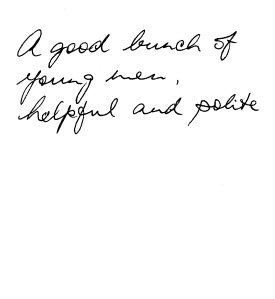 A good bunch of
young men,
helpful and polite